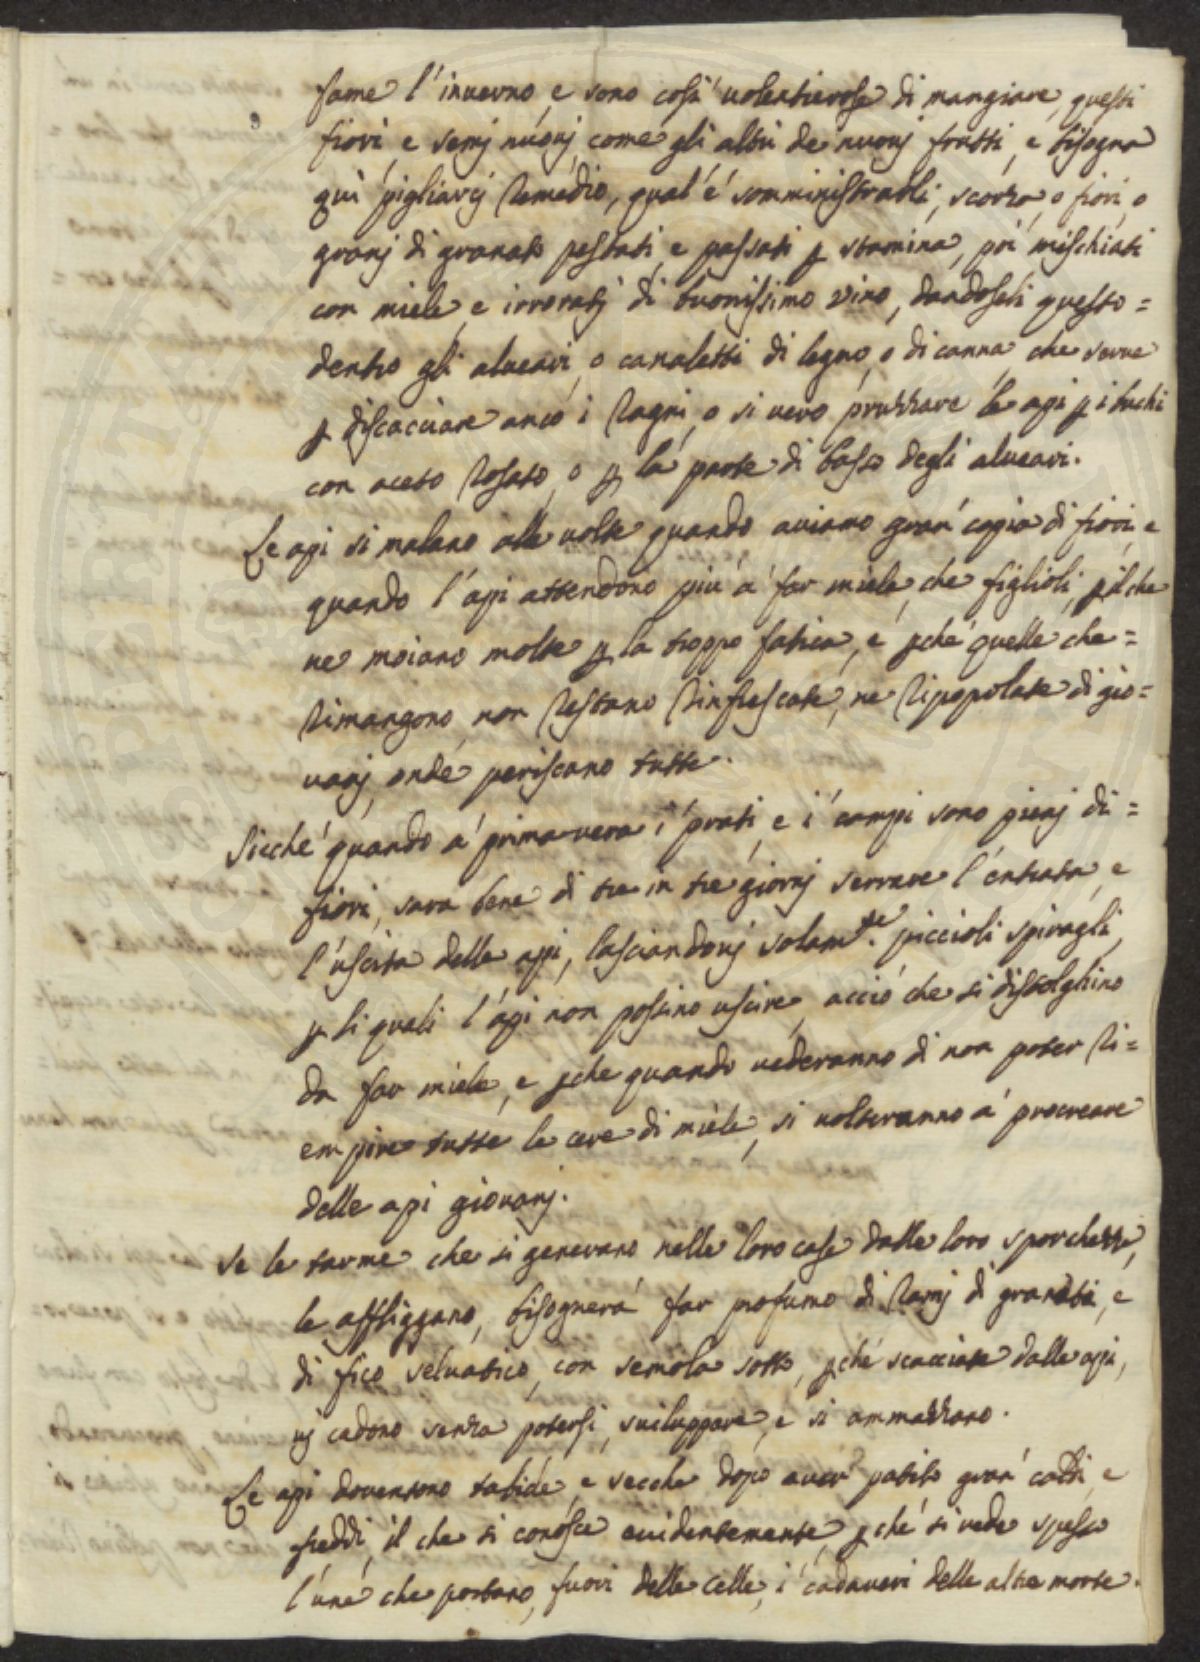 fame l'inverno, e sono così volentierose di mangiare, questi
fiori, e semj nuovj, come gli altri de nuovj frutti, e bisogna
quì pigliarcj remedio, qual'è somministrarli, scorza, o fiori, o
granj di granati pestati, e passati ꝑ stamina, poi mischiati
con miele, e irroratj di buonissimo vino, dandoseli questo =
dentro gli alueari, o canaletti di legno, o di canna, che serue
ꝑ discacciare anco i ragni, o si vero spruzzare le api ꝑ i buchi
con aceto rosato, o ꝑ la parte di basso degli alueari.
Le api si malano alle uolte quando auiamo gran' copia di fiori, e
quando l'api attendono più à far miele, che figlioli, ꝑ il che
ne moiano molte ꝑ la troppo fatica, e ꝑche quelle che =
rimangono, non restano rinfrescate, ne ripopolate di gio=
vanj, onde periscano tutte.
Sicche quando à prima vera i prati, e i campi sono pienj di =
fiori, sara bene di tre in tre giorni serrare l'entrata, e
l'uscita delle api, lasciandouj solam.te piccioli spiragli,
ꝑ li quali l'api non possino uscire, acciò che si distolghino
da far miele, e ꝑche quando uederanno di non poter ri=
empire tutte le cere di miele, si uolteranno à procreare
delle api giouanj.
Se le tarme che si generano nelle loro case dalle loro sporchezze,
le affliggano, bisognerà far profumo di ramj di granati, e
di fico seluatico, con semola sotto, ꝑchè scacciate dalle api,
uj cadono senza potersi suiluppare, e si ammazzano.
Le api douentono tabide, e secche dopo auer patito gran' caldi, e
freddi, il che si conosce euidentemente, ꝑchè si vede spesso
l'une che portano, fuori delle celle, i cadaueri delle altre morte.